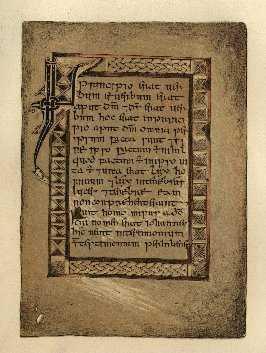 IN principio erat uer
bum & uerbum erat
apud dm & ds erat uer
bum hoc erat inprinci
pio apud dm omnia per
ipsum facta sunt &
ne ipso factum nihil
quod factum inipso ui
ta & uita erat lux ho
minum & lux intenebris
lucet & tenebrae eam
non conprehenderunt
fuit homo misus a do
cui nomen erat iohannis
hic uenit intestimonium
testimonium perhiberet